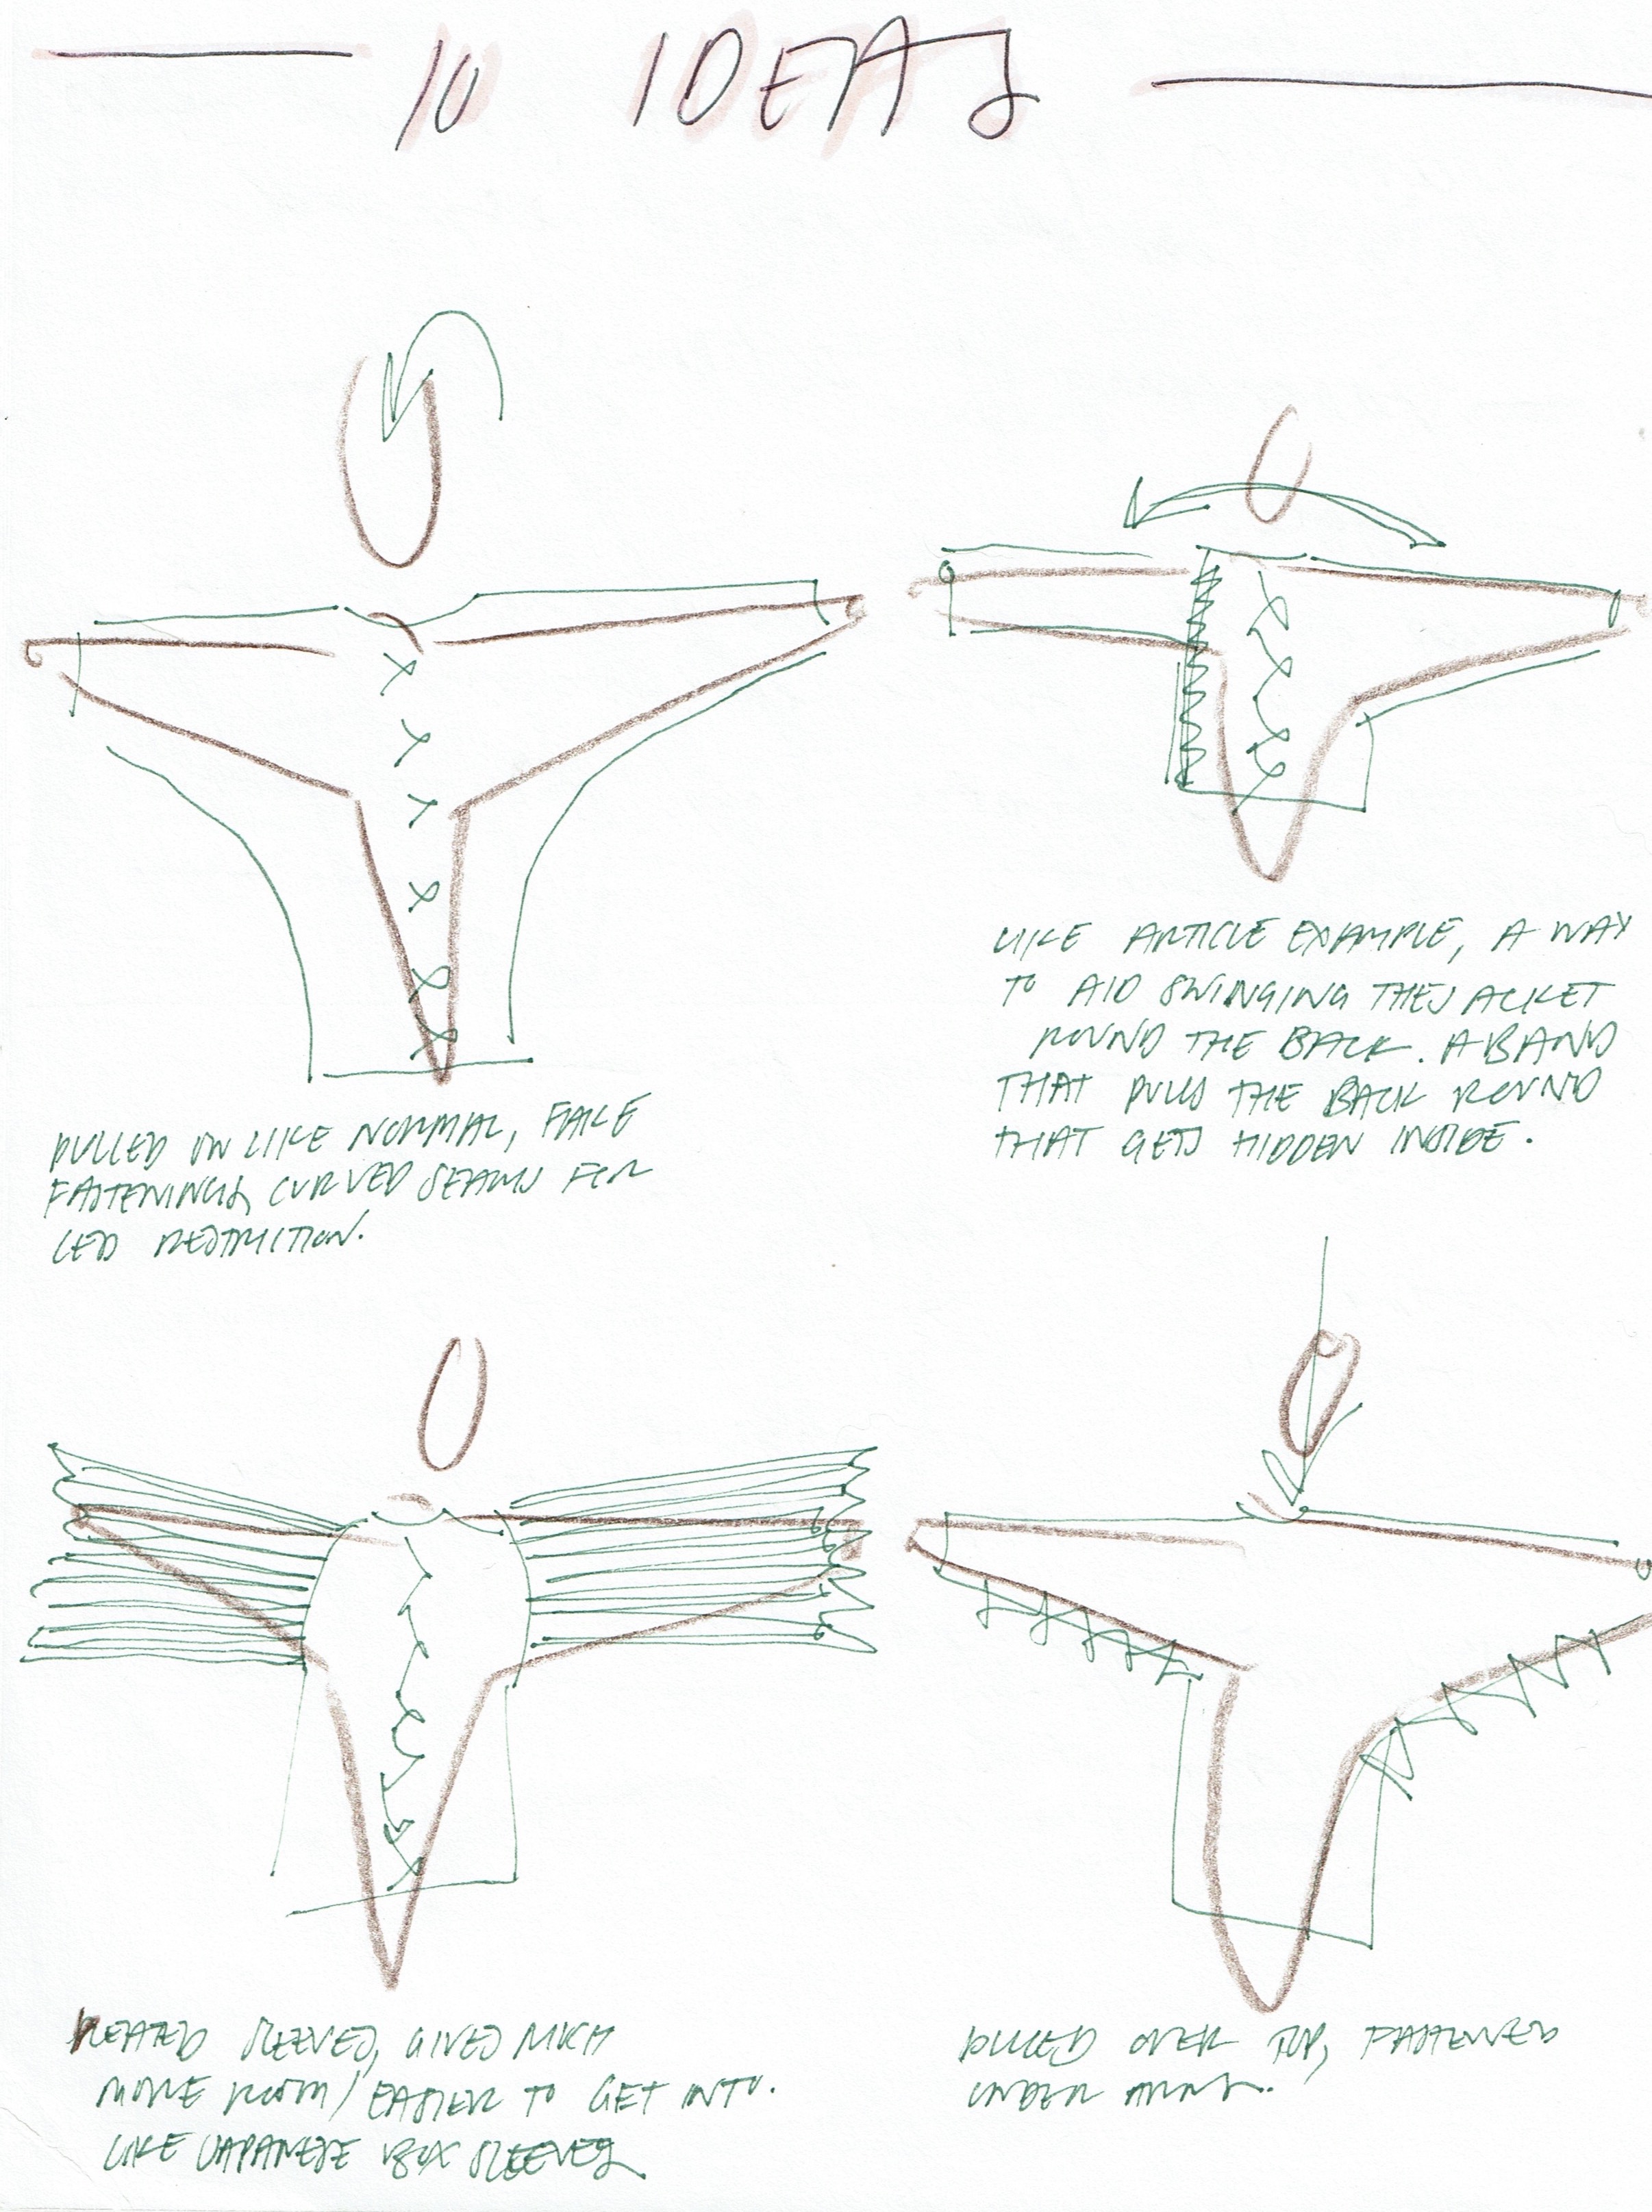 10 IDEAS
PULLED ON LIKE NORMAL, FAKE
FASTENINGS, CURVED SEAMS FOR
LESS RESTRICTION.
LIKE ARTICLE EXAMPLE, A WAY
TO AID SWINGING THE JACKET
ROUND THE BACK. A BAND
THAT PULLS THE BACK ROUND
THAT GETS HIDDEN INSIDE.
PLEATED SLEEVES, GIVES MUCH
MORE ROOM/EASIER TO GET INTO.
LIKE JAPANESE BOX SLEEVES
PULLED OVER TOP, FASTENED
UNDER ARMS.